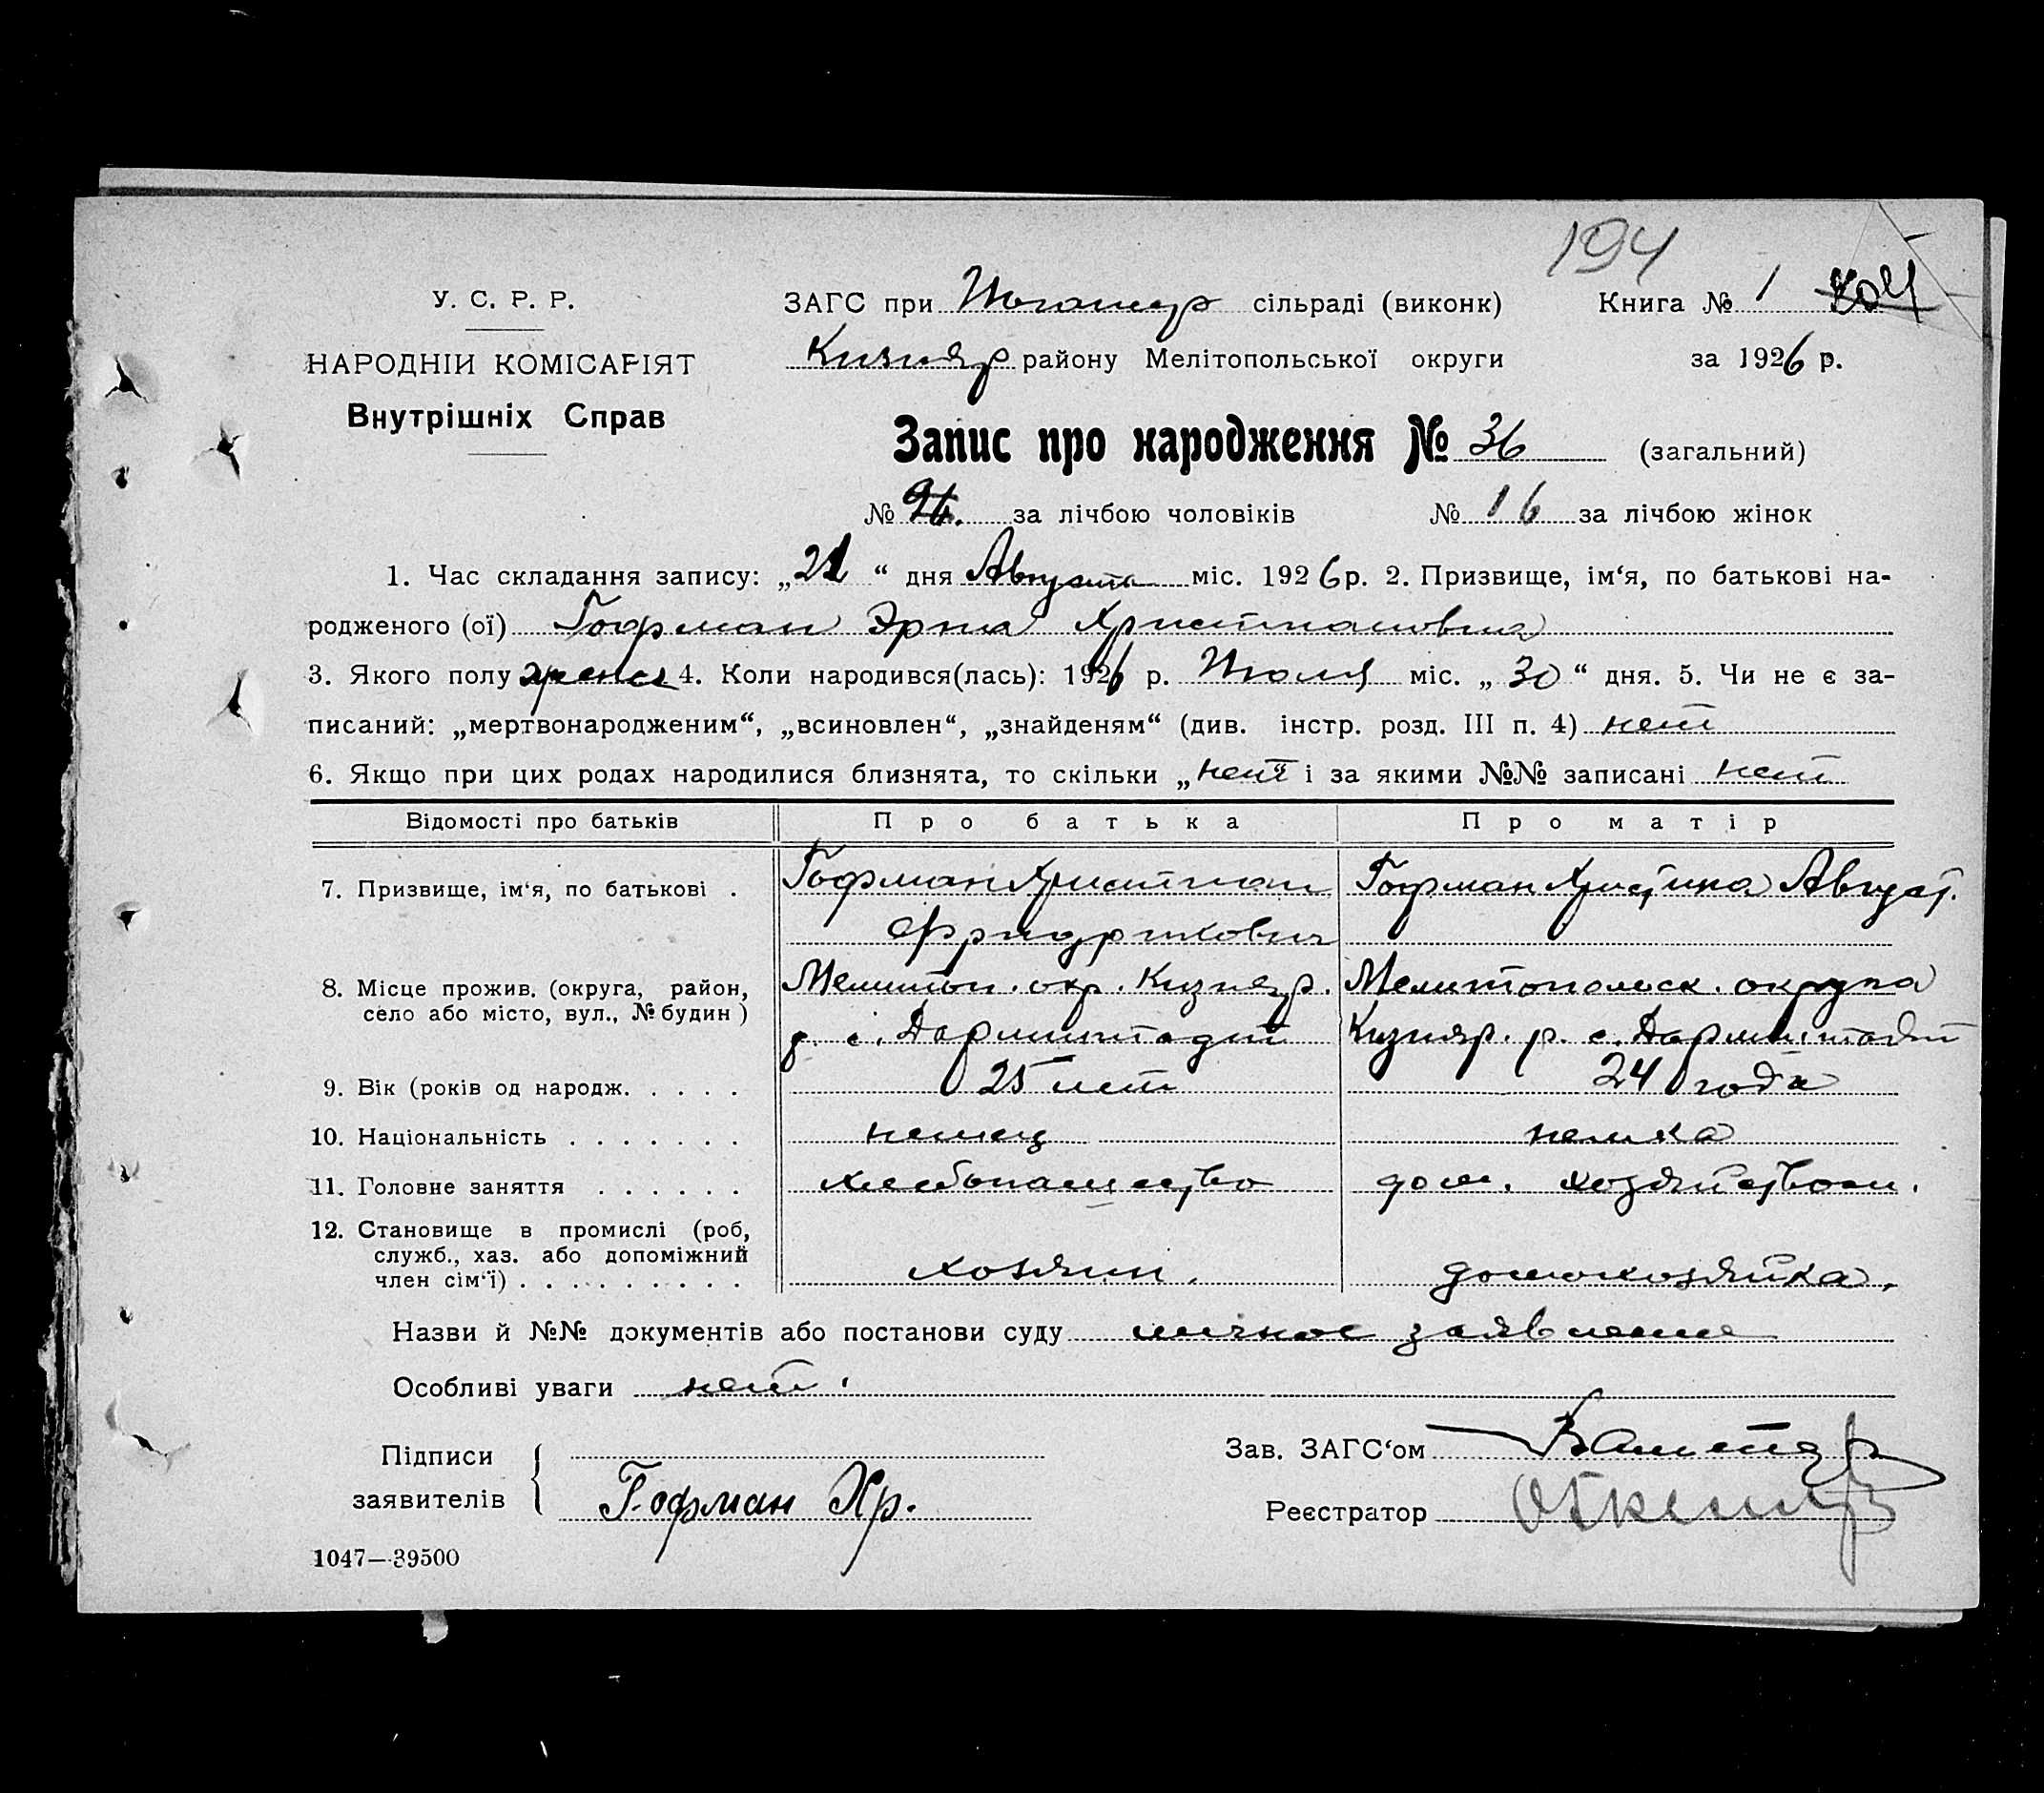 194
У. С. Р. Р.
НАРОДНІЙ КОМІСАРІЯТ
Внутрішніх Справ
ЗАГС при сільраді (виконк) Книга № 1
Кизияр району Мелітопольської округи за 1926 р.
Запис про народження № 36 (загальний)
№ за лічбою чоловіків № 16 за лічбою жінок
1. Час складання запису: „21“ дня Августа міс. 1926 р. 2. Призвище, ім‘я, по батькові на-
родженого (ої) Гофман Эрна Христиановна
3. Якого полу женск 4. Коли народився(лась): 1926 р. Июля міс. „30“ дня. 5. Чи не є за-
писаний: „мертвонародженим“, „всиновлен“, „знайденям“ (див. інстр. розд. III п. 4) нет
6. Якщо при цих родах народилися близнята, то скільки „нет“ і за якими №№ записані нет
Відомості про батьків Про батька Про матір
7. Призвище, ім‘я, по батькові . Гофман Христиан Гофман Христина Август.
Фридрихович
8. Місце прожив. (округа, район, Мелитоп. окр. Кизияр. Мелитопольск. округа
село або місто, вул., № будин) р. с. Дармштадт Кизияр. р. с. Дармштадт
9. Вік (років од народж. . . . . 25 лет 24 года
10. Національність . . . . . . . немец немка
11. Головне заняття . . . . . . хлебопашество дом. хозяйством.
12. Становище в промислі (роб,
служб., хаз. або допоміжний
член сім‘ї) . . . . . . . . . хозяин. домохозяйка.
Назви й №№ документів або постанови суду личное заявление
Особливі уваги нет.
Підписи
заявителів Гофман Хр.
Зав. ЗАГС‘ом
Реєстратор
1047—39500